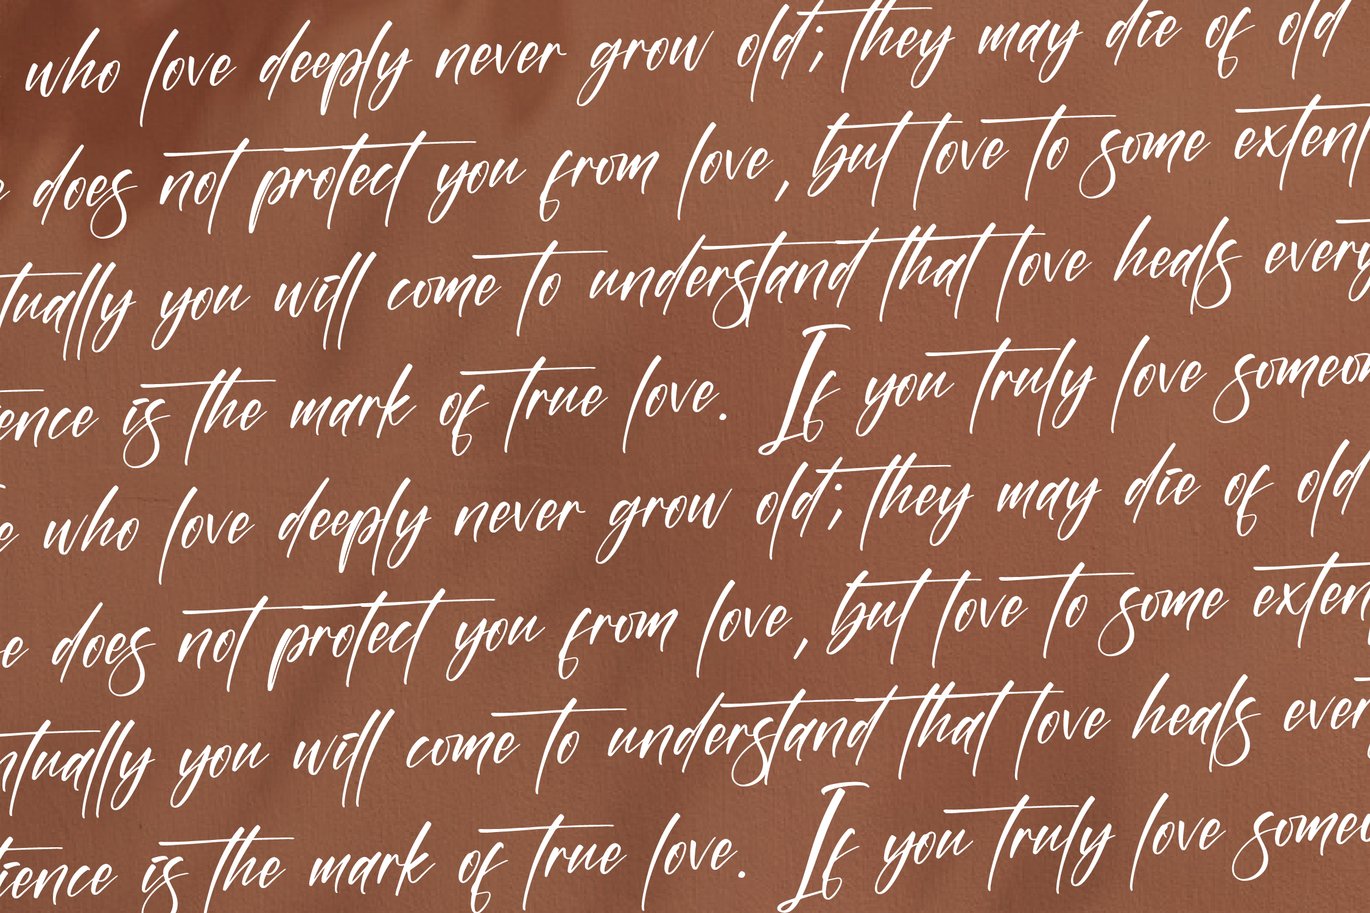 who love deeply never grow old; they may die of old
does not protect you from love, but love to some extent
tually you will come to understand that love heals every
ence is the mark of true love. If you truly love someon
e who love deeply never grow old; they may die of old
e does not protect you from love, but love to some exten
ntually you will come to understand that love heals ever
ience is the mark of true love. If you truly love someo